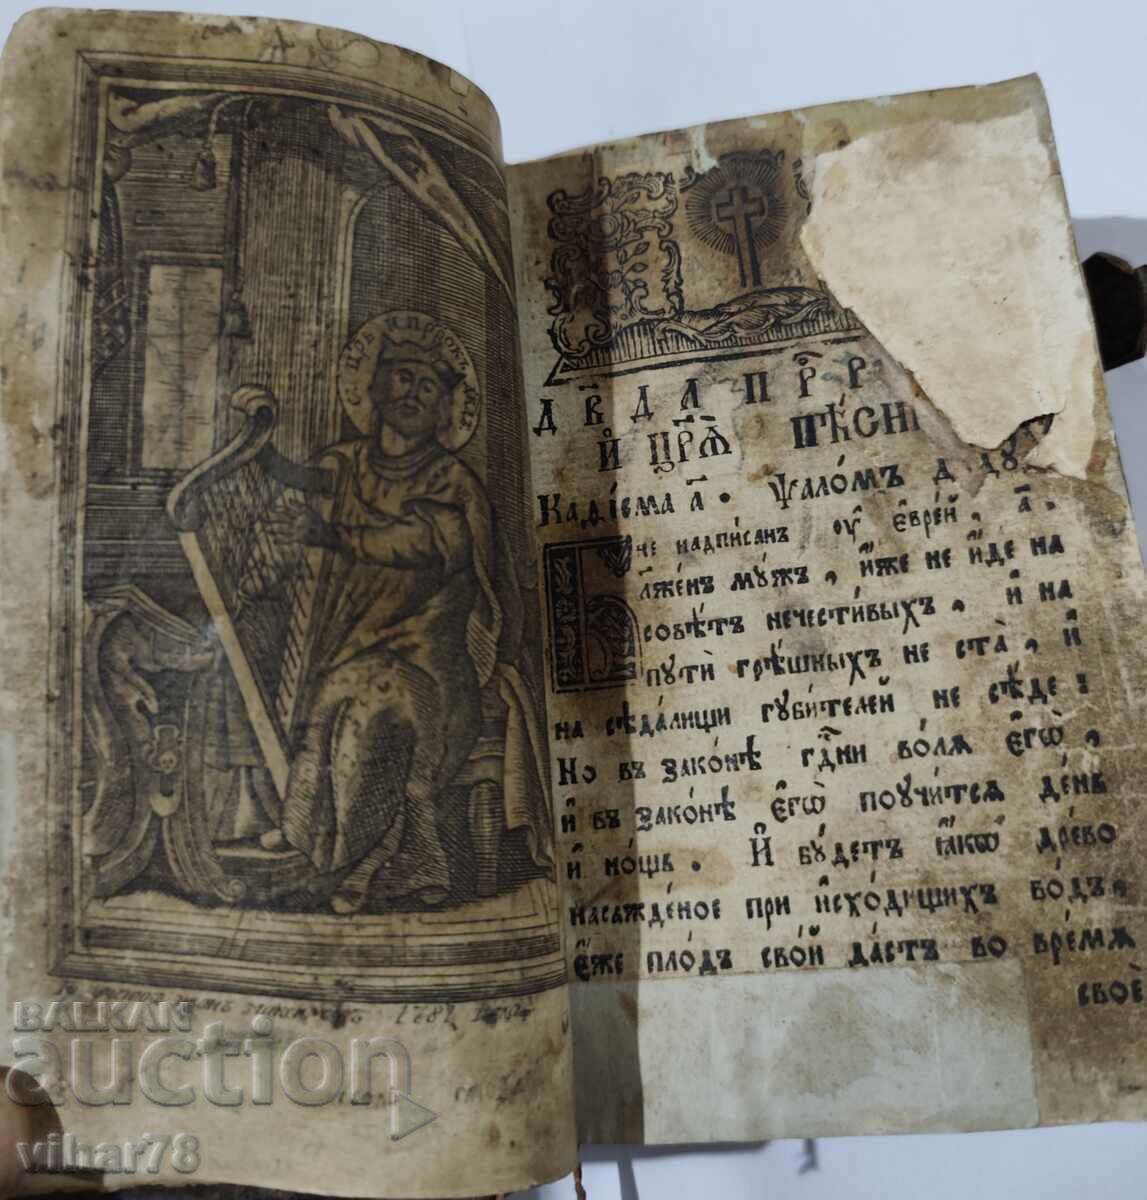 С. ЦРЬ И ПРОРОКЪ
1781
ДВДА ПРР
И ЦРѦ ПѢСНИ
Каѳісма а҃ . Ѱаломъ д
не надписанъ оу҆ є҆врей , а҃ .
Блаже́нъ мужъ , и҆́же не и҆́де на
совѣ́тъ нечести́выхъ , и҆ на
пути̑ грѣ́шныхъ не ста̀ , и҆
на сѣда́лищи губи́телей не сѣ́де :
Но въ зако́нѣ гд҃ни во́лѧ є҆гѡ̀ ,
и҆ въ зако́нѣ є҆гѡ̀ поучи́тсѧ де́нь
и҆ но́щь . И҆ бу́детъ ꙗ҆́кѡ дре́во
насажде́ное при и҆сходищихъ во́дъ ,
є҆́же пло́дъ сво́й да́стъ во вре́мѧ
своѐ
BALKAN
auction
vihar78